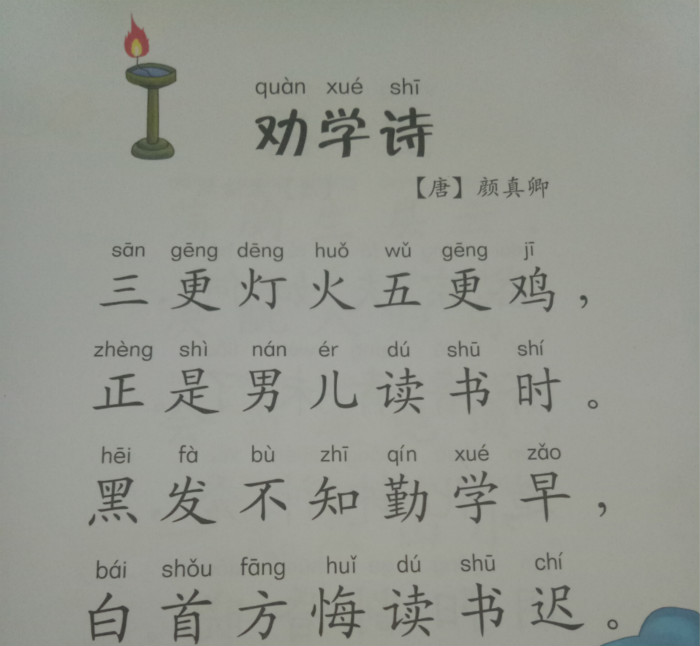 quàn xué shī
劝学诗
【唐】颜真卿
sān gēng dēng huǒ wǔ gēng jī
三更灯火五更鸡，
zhèng shì nán ér dú shū shí
正是男儿读书时。
hēi fà bù zhī qín xué zǎo
黑发不知勤学早，
bái shǒu fāng huǐ dú shū chí
白首方悔读书迟。